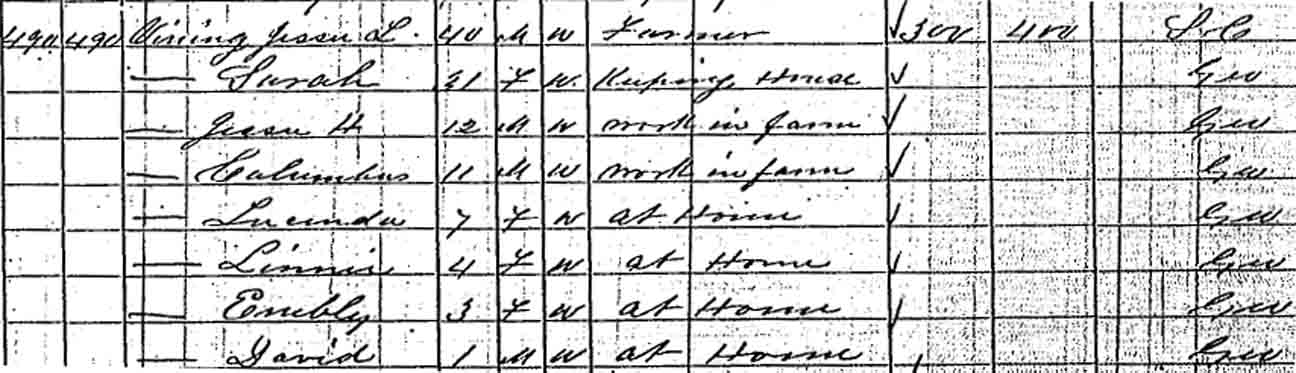 490 490 Vining Jesse L. 40 M W Farmer ✓ 300 400 S.C
— Sarah 31 F W. Keeping House ✓ Geo
— Jesse H 12 M W work in farm ✓ Geo
— Columbus 11 M W work in farm ✓ Geo
— Lucinda 7 F W at Home ✓ Geo
— Linnie 4 F W at Home ✓ Geo
— Embly 3 F W at Home ✓ Geo
— David 1 M W at Home ✓ Geo